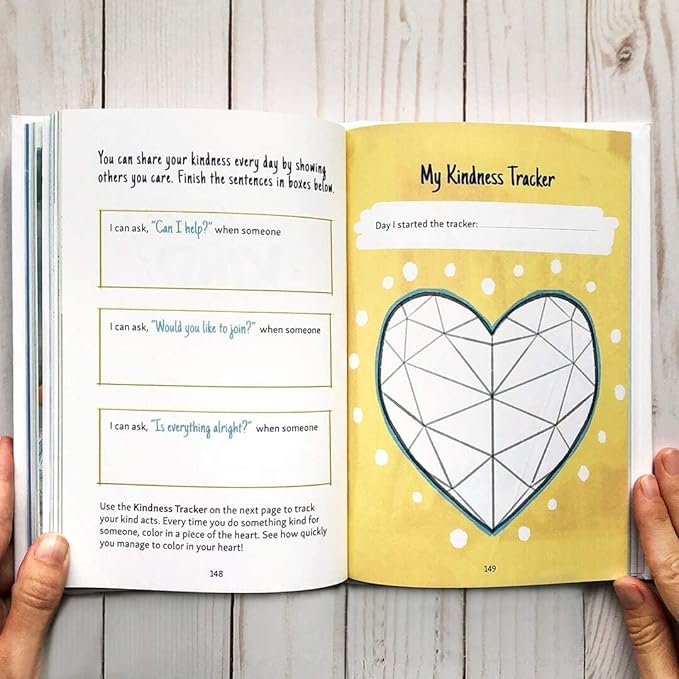 You can share your kindness every day by showing
others you care. Finish the sentences in boxes below.
I can ask, "Can I help?" when someone
I can ask, "Would you like to join?" when someone
I can ask, "Is everything alright?" when someone
Use the Kindness Tracker on the next page to track
your kind acts. Every time you do something kind for
someone, color in a piece of the heart. See how quickly
you manage to color in your heart!
148
My Kindness Tracker
Day I started the tracker:
149